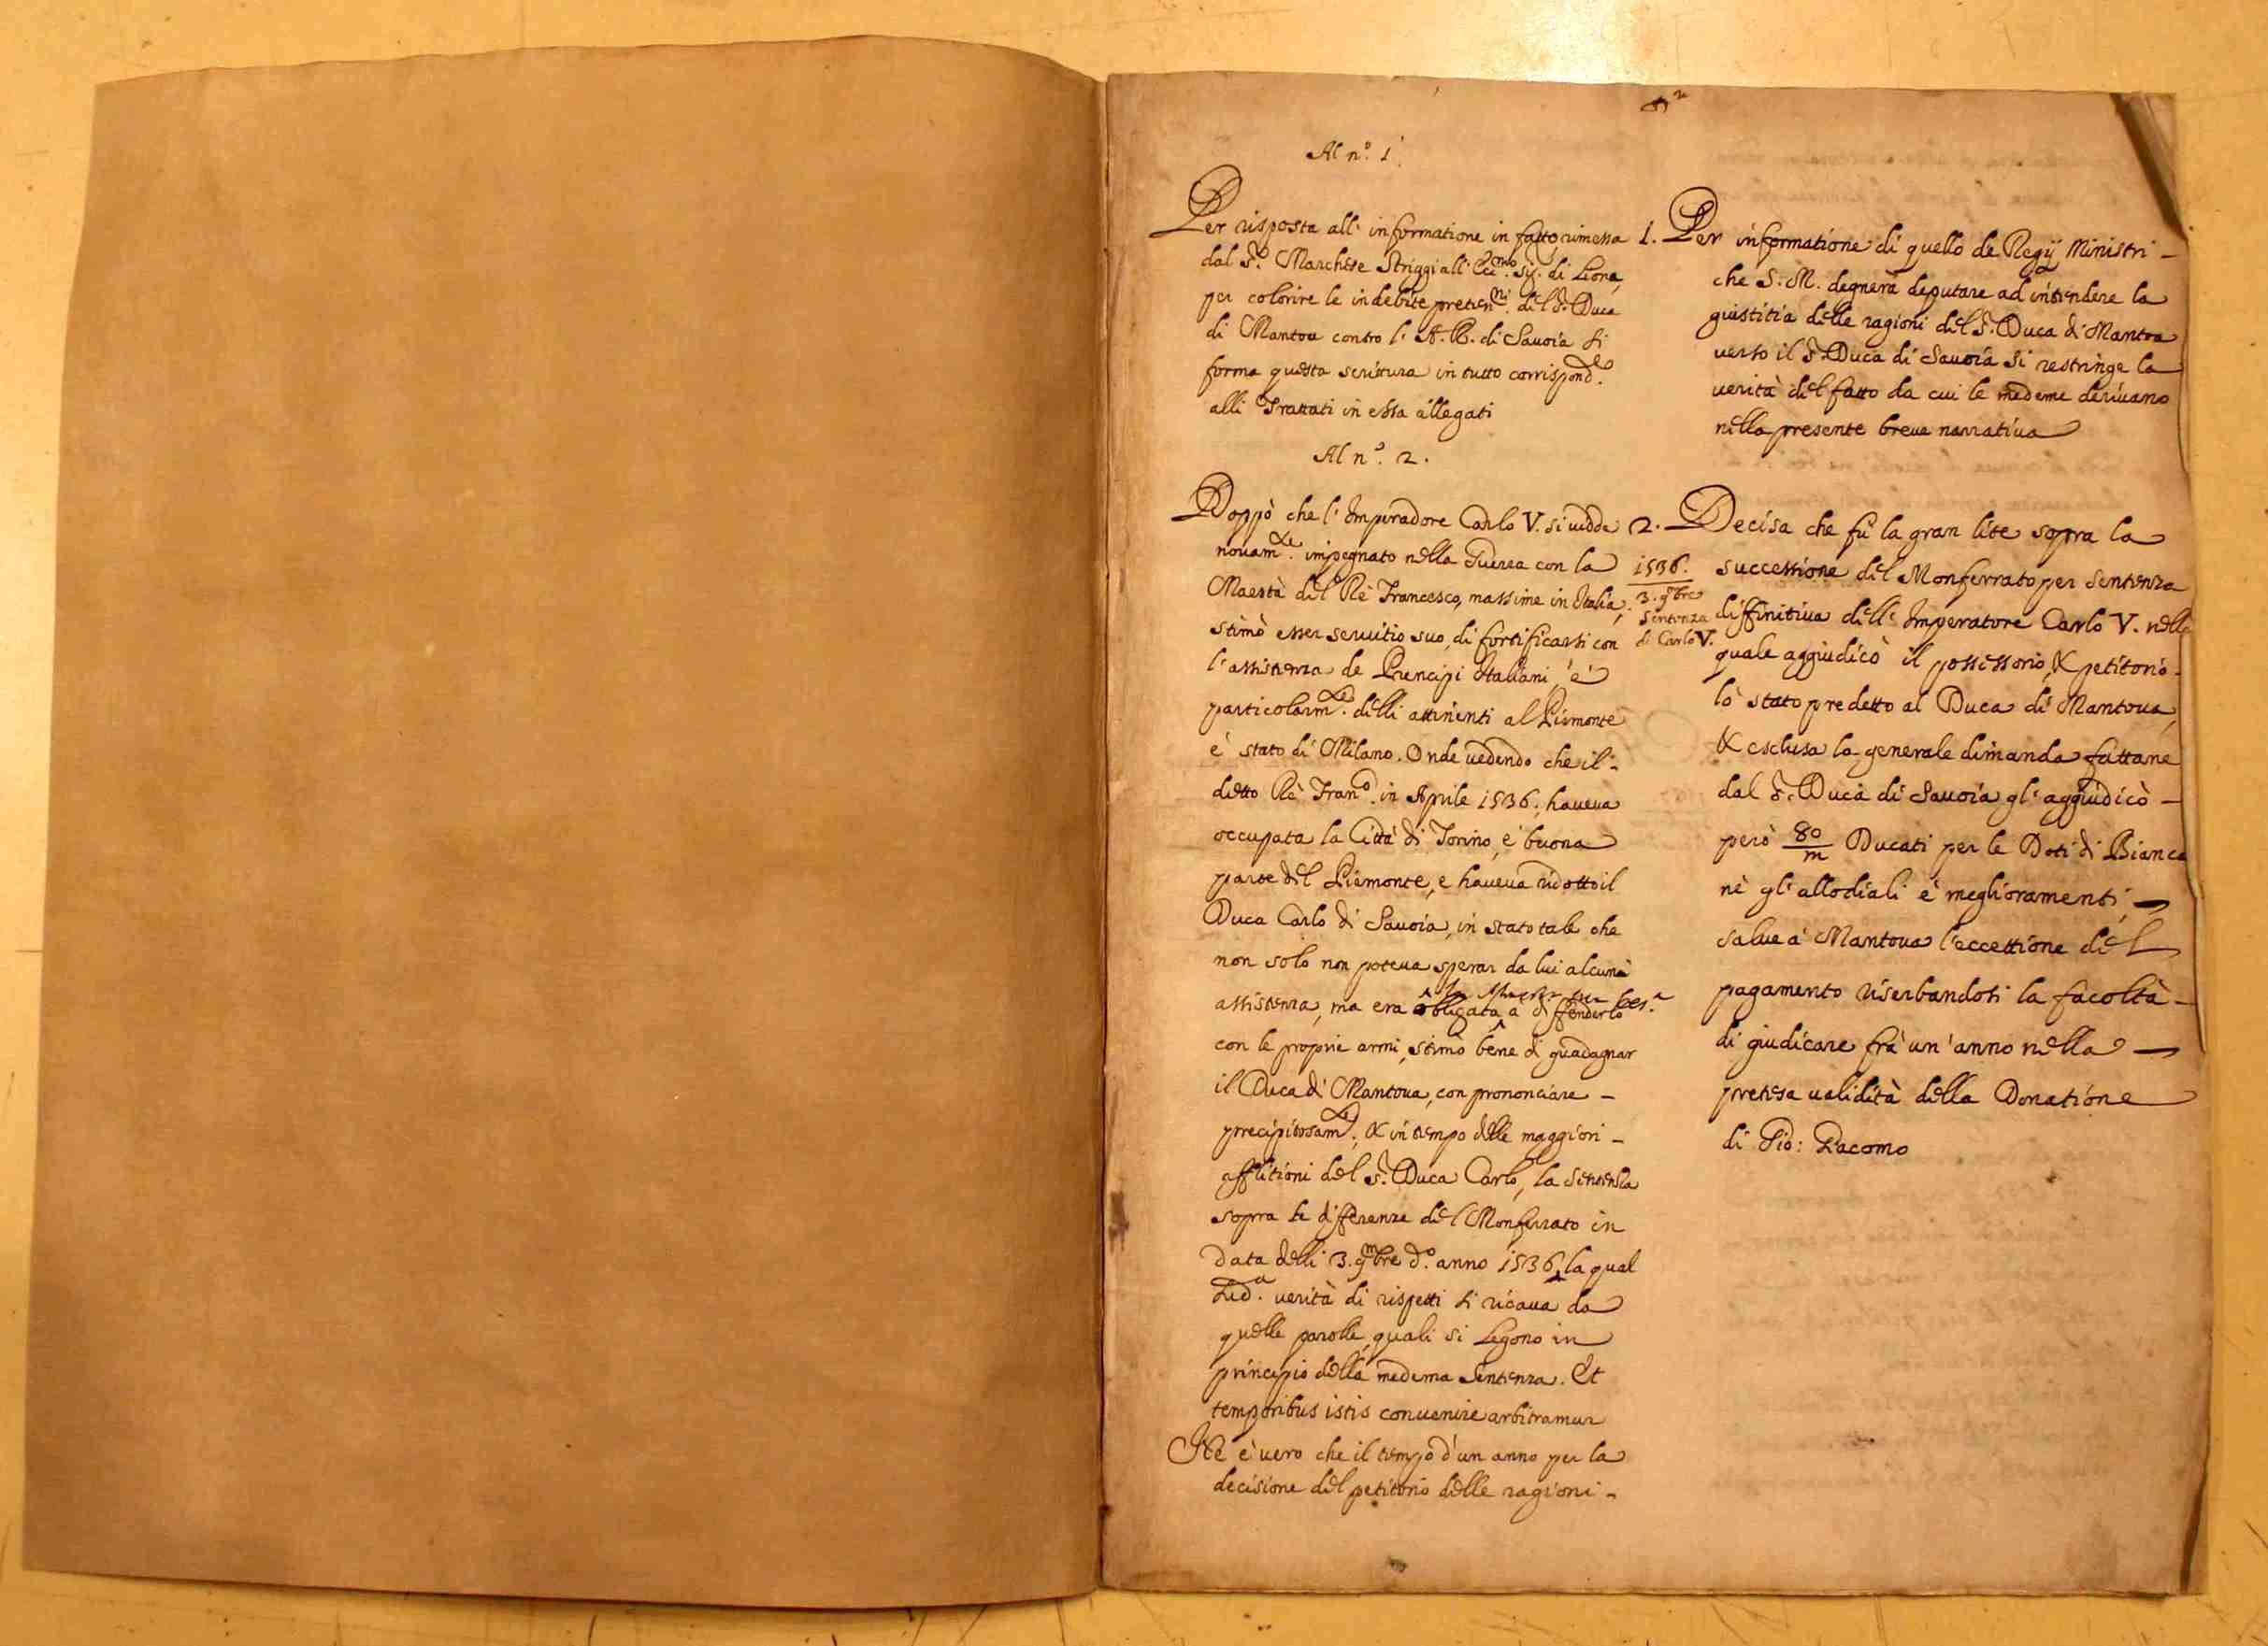 Al n.º 1.
Per risposta all' informatione in fatto rimessa
dal S.r Marchese Striggi all' Ecc.mo Sig. di Lione,
per colorire le indebite preten.ni del S.r Duca
di Mantoua contro l' A. R. di Sauoia si
forma questa scrittura in tutto corrispond.e
alli Trattati in essa allegati
Al n.º 2.
Doppò che l' Imperadore Carlo V. si uidde
nouam.te impegnato nella Guerra con la
Maestà del Rè Francesco, massime in Italia,
stimò esser seruitio suo, di fortificarsi con
l' assistenza de Prencipi Italiani, è
particolarm.te delli attinenti al Piemonte
è stato di Milano. Onde uedendo che il -
detto Rè Fran.co in Aprile 1536. haueua
occupata la Città di Torino, è buona
parte del Piemonte, e haueua ridotto il
Duca Carlo di Sauoia, in stato tale che
non solo non poteua sperar da lui alcuna
assistenza, ma era obligata a diffenderlo
con le proprie armi, stimò bene di guadagnar
il Duca di Mantoua, con prononciare -
precipitosam.te, & in tempo delle maggiori -
afflitioni del S.r Duca Carlo, la Sentenza
sopra le differenze del Monferrato in
data delli 3. 9mbre d.º anno 1536, la qual
verità di rispetti si ricaua da
quelle parolle, quali si legono in
principio della medema Sentenza. Et
temporibus istis conuenire arbitramur
Ne è uero che il tempo d'un anno per la
decisione del petitorio delle ragioni -
1. Per informatione di quello de Regij Ministri -
che S. M. degnerà deputare ad intendere la
giustitia delle ragioni del S.r Duca di Mantoa
uerso il S.r Duca di Sauoia si restringe la
uerità del fatto da cui le medeme deriuano
nella presente breue narratiua
2. Decisa che fù la gran lite sopra la
successione del Monferrato per Sentenza
diffinitiua dell' Imperatore Carlo V. nella
quale aggiudicò il possessorio, & petitorio -
lo stato predetto al Duca di Mantoua,
& esclusa la generale dimanda fattane
dal S.r Duca di Sauoia gl' aggiudicò -
però 80/m Ducati per le Doti di Bianca
nè gl' allodiali è meglioramenti, -
salue à Mantoua l'eccettione del
pagamento riserbandosi la facoltà -
di giudicare frà un' anno nella -
pretesa ualidità della Donatione
di Gio: Giacomo
1536.
3. 9bre
Sentenza
di Carlo V.